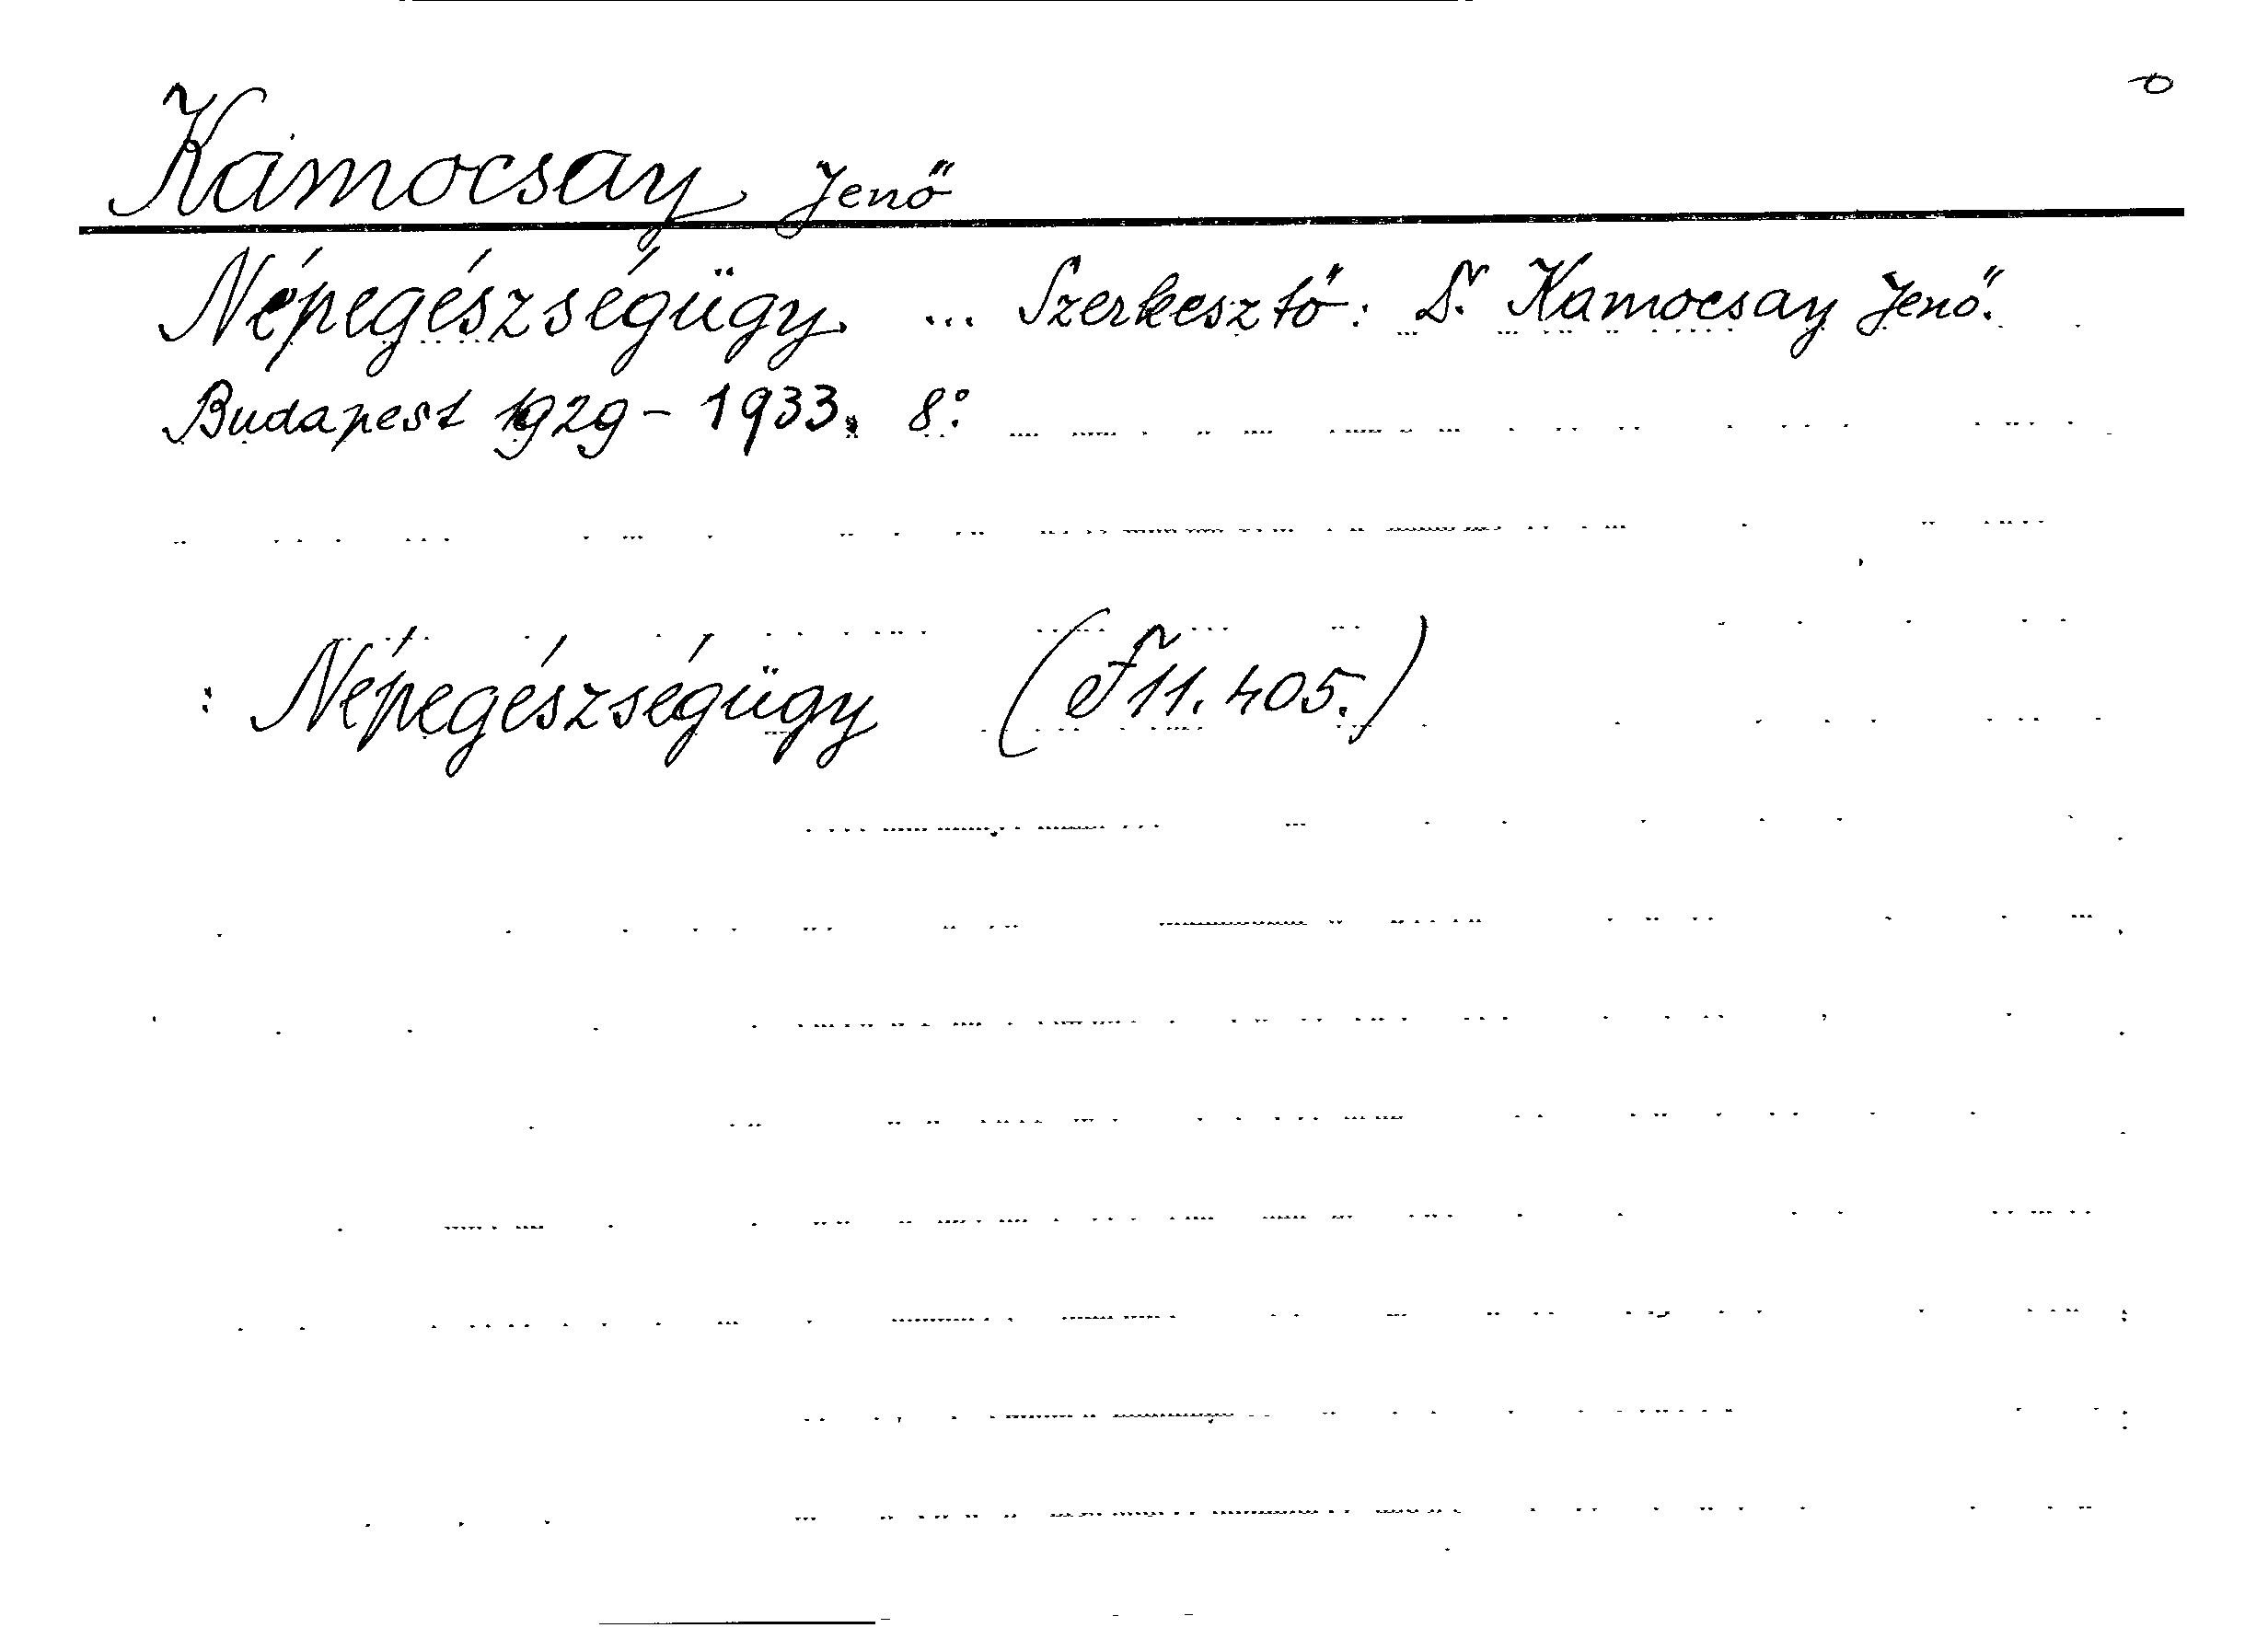 Kamocsay Jenő
Népegészségügy ... Szerkesztő: Dr. Kamocsay Jenő.
Budapest 1929-1933. 8°
: Népegészségügy (F 11.405.)